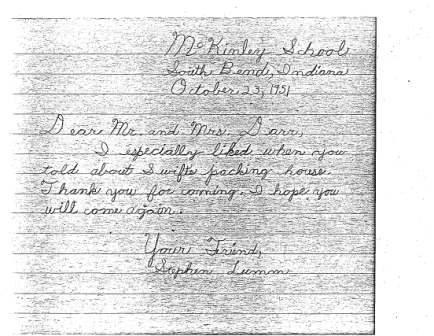 McKinley School
South Bend, Indiana
October 23, 1951
Dear Mr. and Mrs. Darr,
I especially liked when you
told about Swifts packing house.
Thank you for coming. I hope you
will come again.
Your Friend,
Stephen Lumm